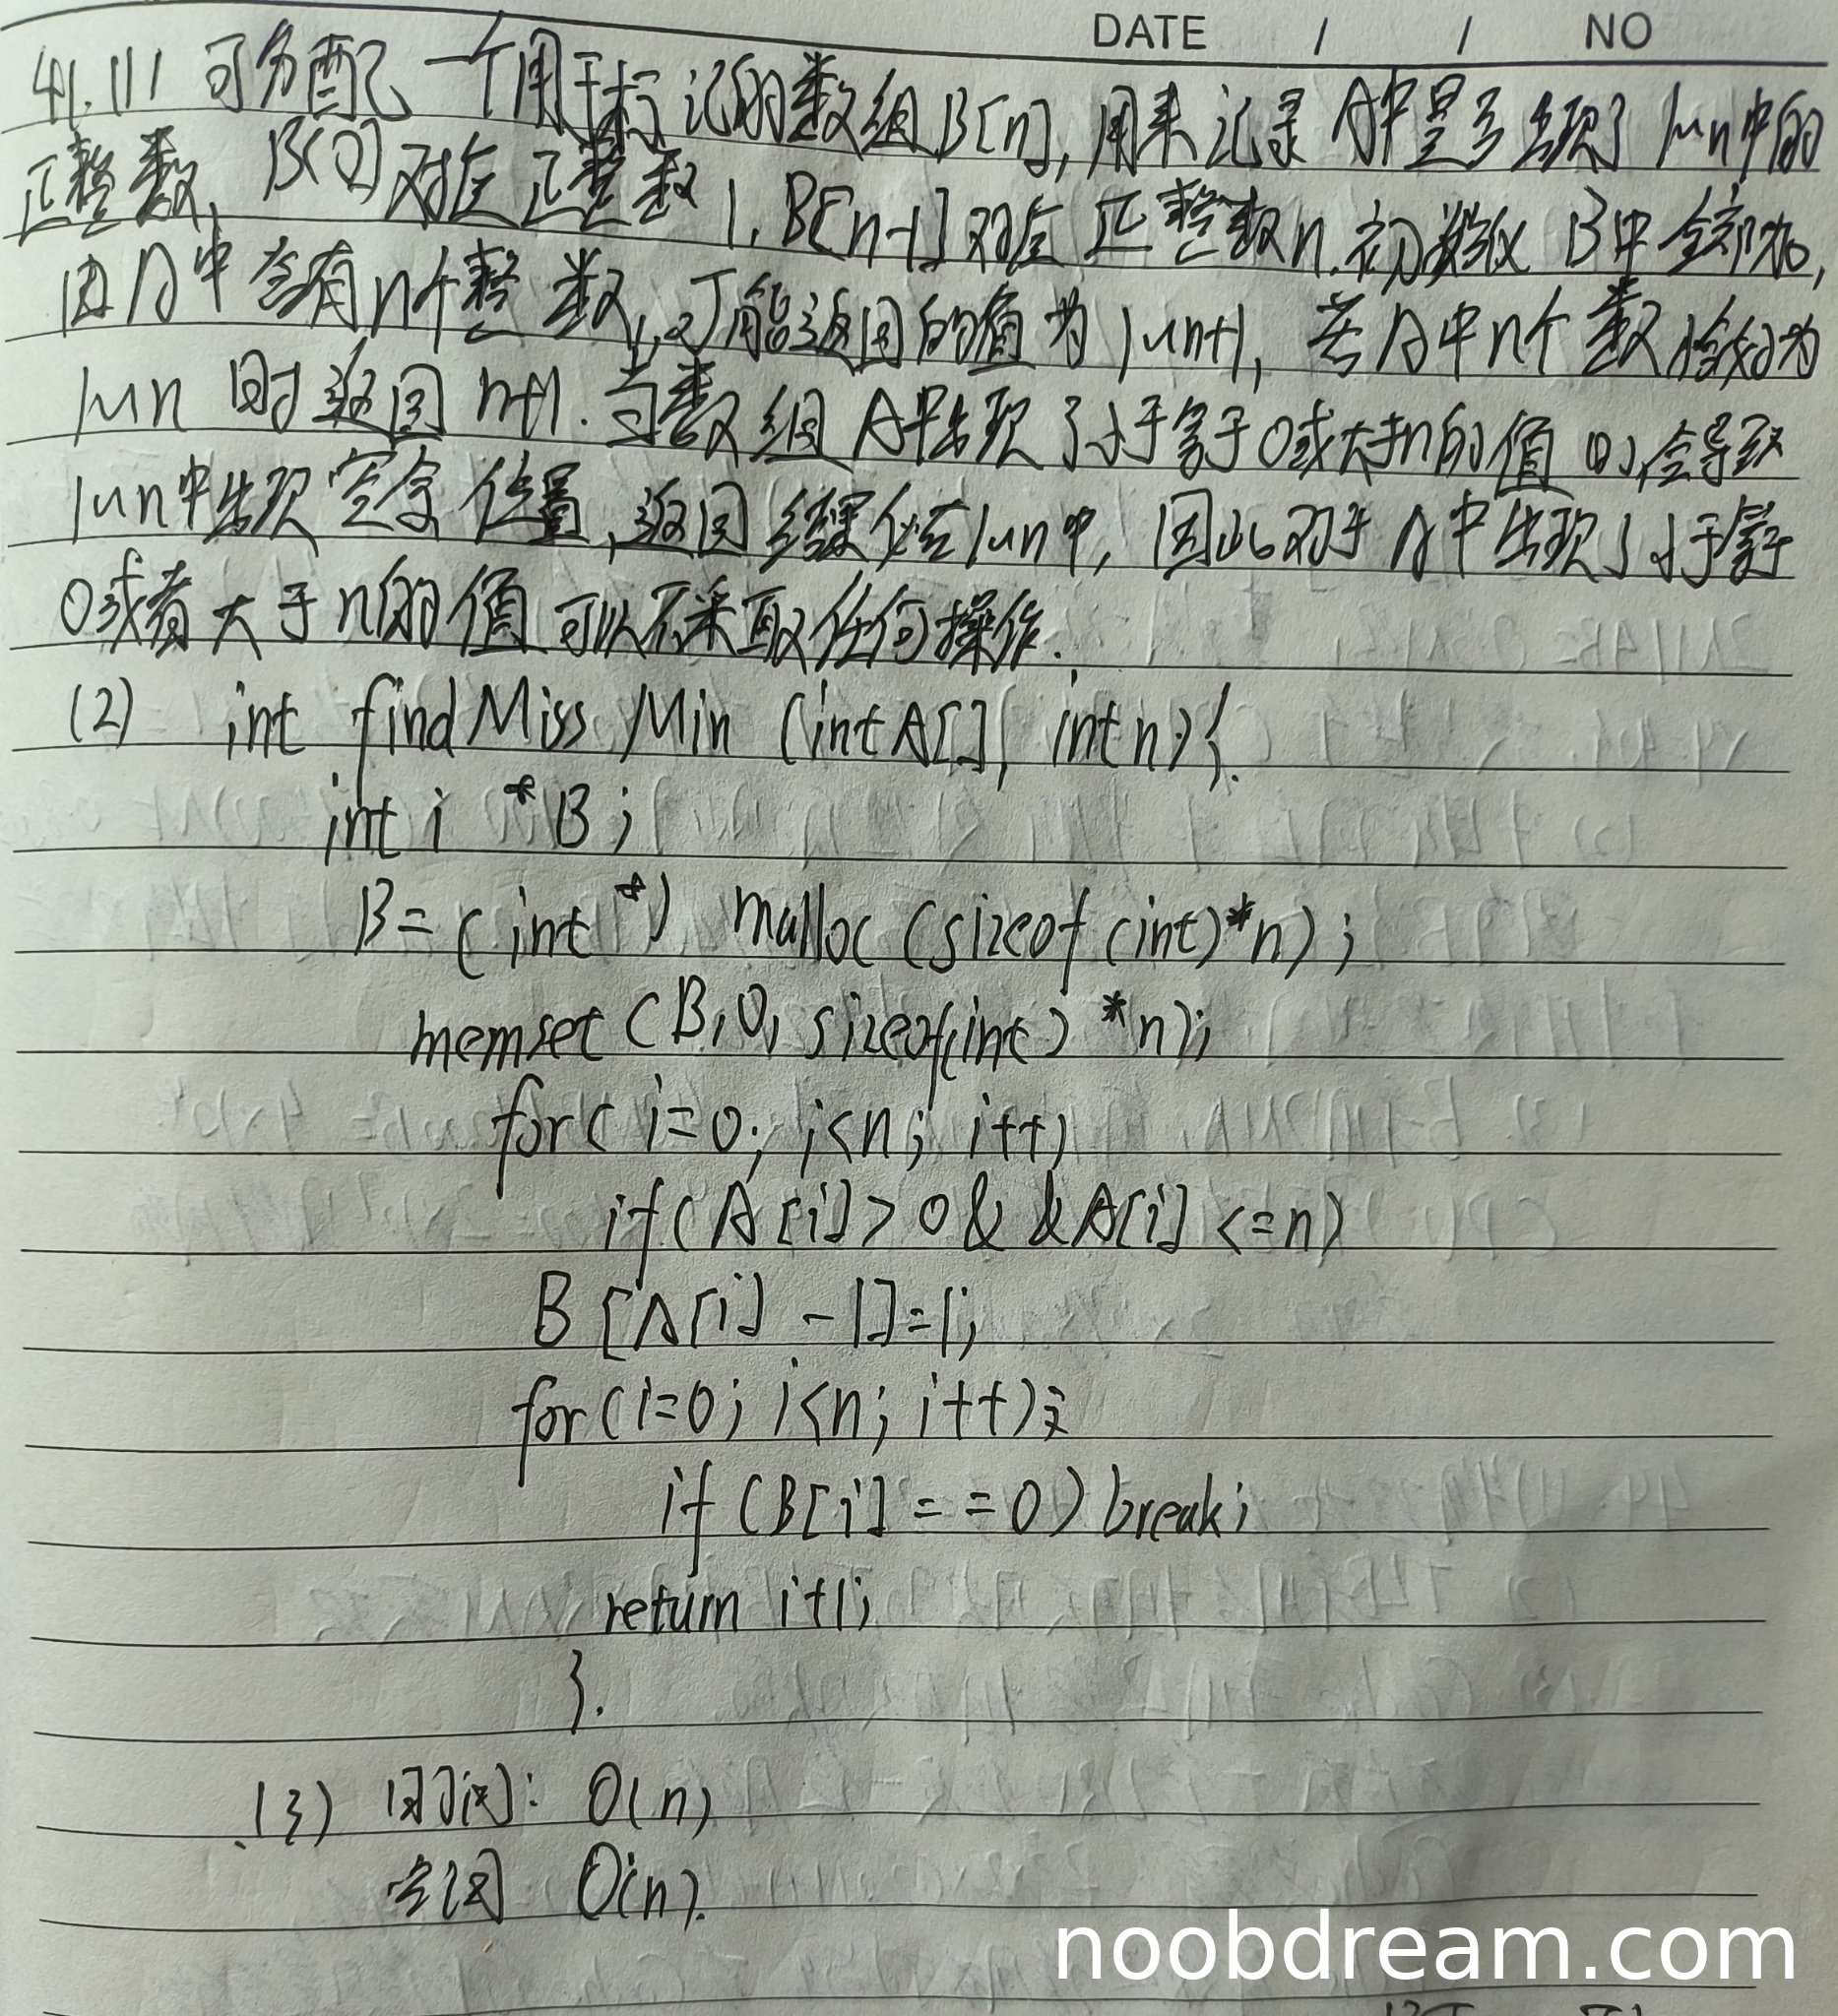 DATE / / NO
41. (1) 可分配一个用于标记的数组B[n], 用来记录A中是否出现了1~n中的
正整数, B[0]对应正整数1, B[n-1]对应正整数n. 初始化B中全部为0,
因A中含有n个整数, 可能返回的值为1~n+1, 若A中n个数恰好为
1~n时返回n+1. 当数组A中出现了小于等于0或大于n的值时,会导致
1~n中出现空余位置, 返回结果必在1~n中, 因此对于A中出现了小于等于
0或者大于n的值可以不采取任何操作.
(2) int findMissMin (int A[], int n){.
int i *B;
B= (int *) malloc (sizeof (int)*n);
memset (B,0, sizeof(int) *n);
for( i=0; i<n; i++)
if(A[i]>0& &A[i] <=n)
B [A[i] -1]=1;
for(i=0; i<n; i++);
if (B[i] = =0) break;
return i+1;
}.
(3) 时间: O(n)
空间 O(n).
noobdream.com